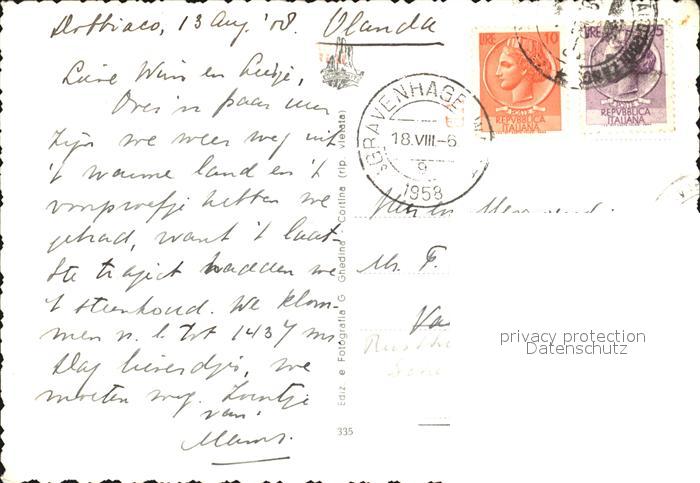 Dobbiaco, 13 Aug. '58. Olanda
Lieve Wim en
Over 'n paar uur
zijn we weer weg uit
't warme land en 't
voorproefje hebben we
gehad, want 't laat-
ste traject hadden we
't steenkoud. We klom-
men n.l. tot 1437 m.
Dag lieverdjes, we
moeten weg. Zoentje
van:
Mams.
LIRE 10
POSTE
REPVBBLICA
ITALIANA
LIRE 25
POSTE
REPVBBLICA
ITALIANA
'S GRAVENHAGE
18.VIII-6
9
1958
Mr. F.
Ediz. e Fotografia G. Ghedina - Cortina (rip. vietata)
335
privacy protection
Datenschutz